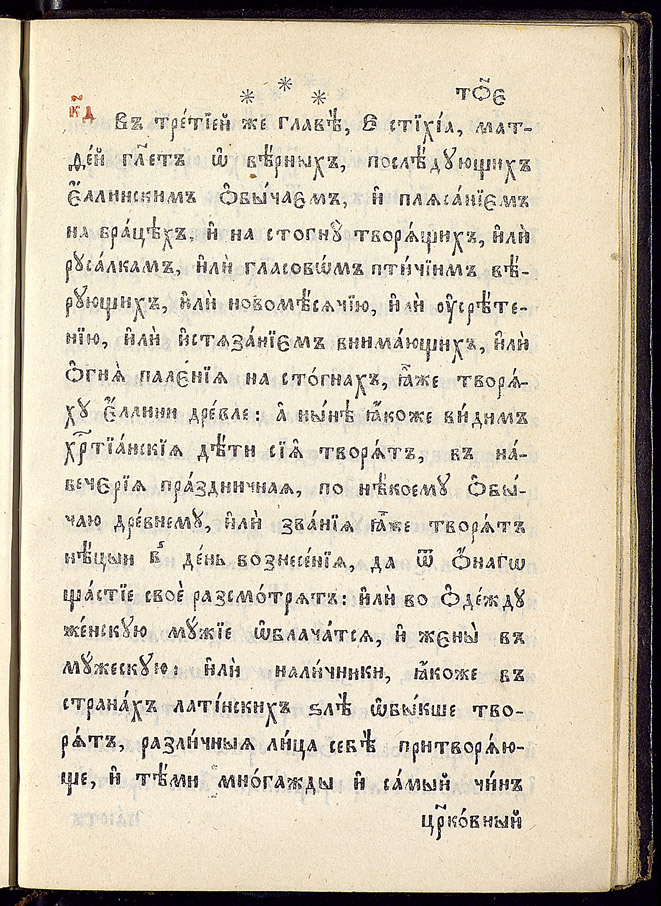 * * *
т҃ѻє
к҃д
Въ тре́тїей же главѣ̀, Є стїхі́а, мат-
ѳе́й гл҃етъ ѡ҆ вѣ́рныхъ, послѣ́дꙋющихъ
є҆́ллинскимъ ѻ҆бы́чаємъ, и҆ пляса́нїємъ
на бра́цѣхъ, и҆ на стогнꙋ̀ творѧ́щихъ, и҆лѝ
рꙋса́лкамъ, и҆лѝ гласовѡ́мъ пти́чїимъ вѣ́-
рꙋющихъ, и҆лѝ новомѣ́сячїю, и҆лѝ ᲂу҆срѣ́те-
нїю, и҆лѝ и҆стяза́нїємъ внима́ющихъ, и҆лѝ
ѻ҆гнѧ̀ пале́нїя на сто́гнахъ, ꙗ҆́же творѧ́-
хꙋ є҆́ллини дре́вле: а҆ ны́нѣ ꙗ҆́коже ви́димъ
хрⷭ҇тїа́нскїя дѣ́ти сїѧ̑ творѧ́тъ, въ на-
вече́рїя пра́здничная, по нѣ́коемꙋ ѻ҆бы́-
чаю дре́внемꙋ, и҆лѝ зва́нїя ꙗ҆́же творѧ́тъ
нѣ́цыи в̾ де́нь вознесе́нїя, да ѿ ѻ҆́нагѡ
ща́стїе своѐ разсмо́трятъ: и҆лѝ во ѻ҆де́ждꙋ
же́нскꙋю мꙋ́жїе ѡ҆блача́тся, и҆ жєны̀ въ
мꙋ́жескꙋю: и҆лѝ нали́чники, ꙗ҆́коже въ
страна́хъ лати́нскихъ ѕлѣ̀ ѡ҆бы́кше тво-
рѧ́тъ, разли́чныя ли́ца себѣ̀ притворѧ́ю-
ще, и҆ тѣ́ми мно́гажды и҆ са́мый чи́нъ
црⷪ҇ко́вный